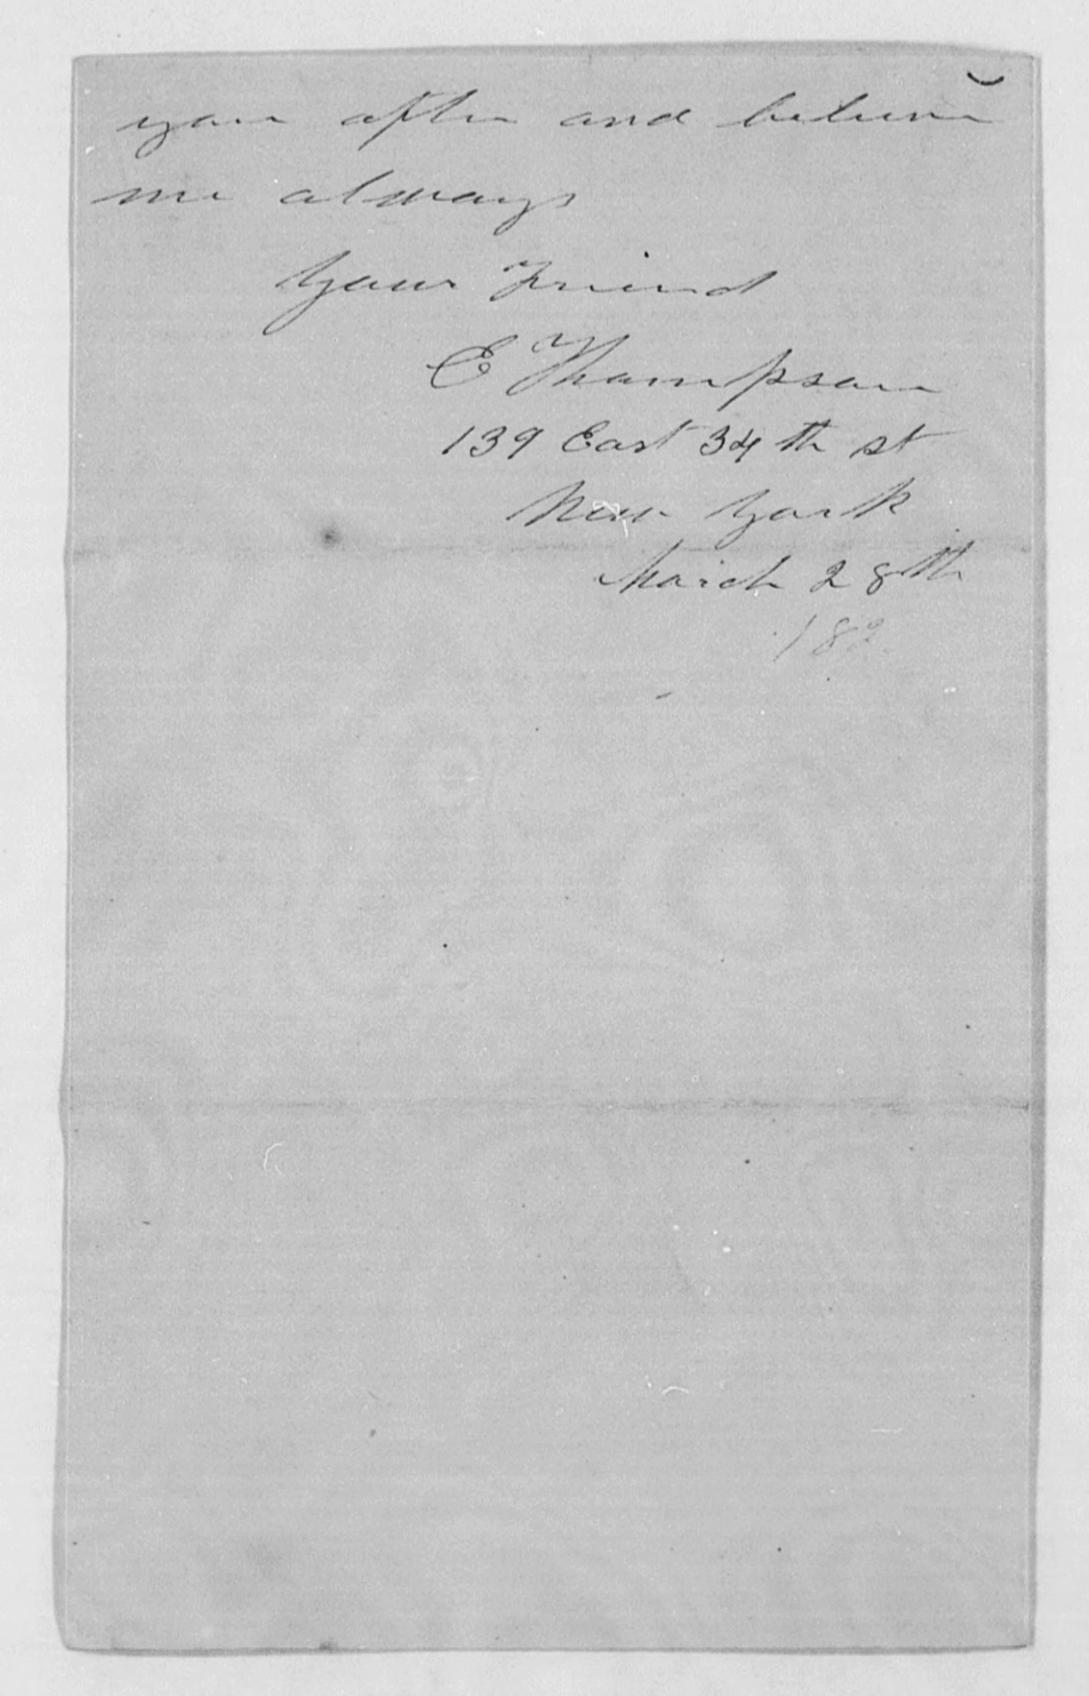 you often and believe
me always
Your Friend
E Thompson
139 East 34th st
New York
March 28th